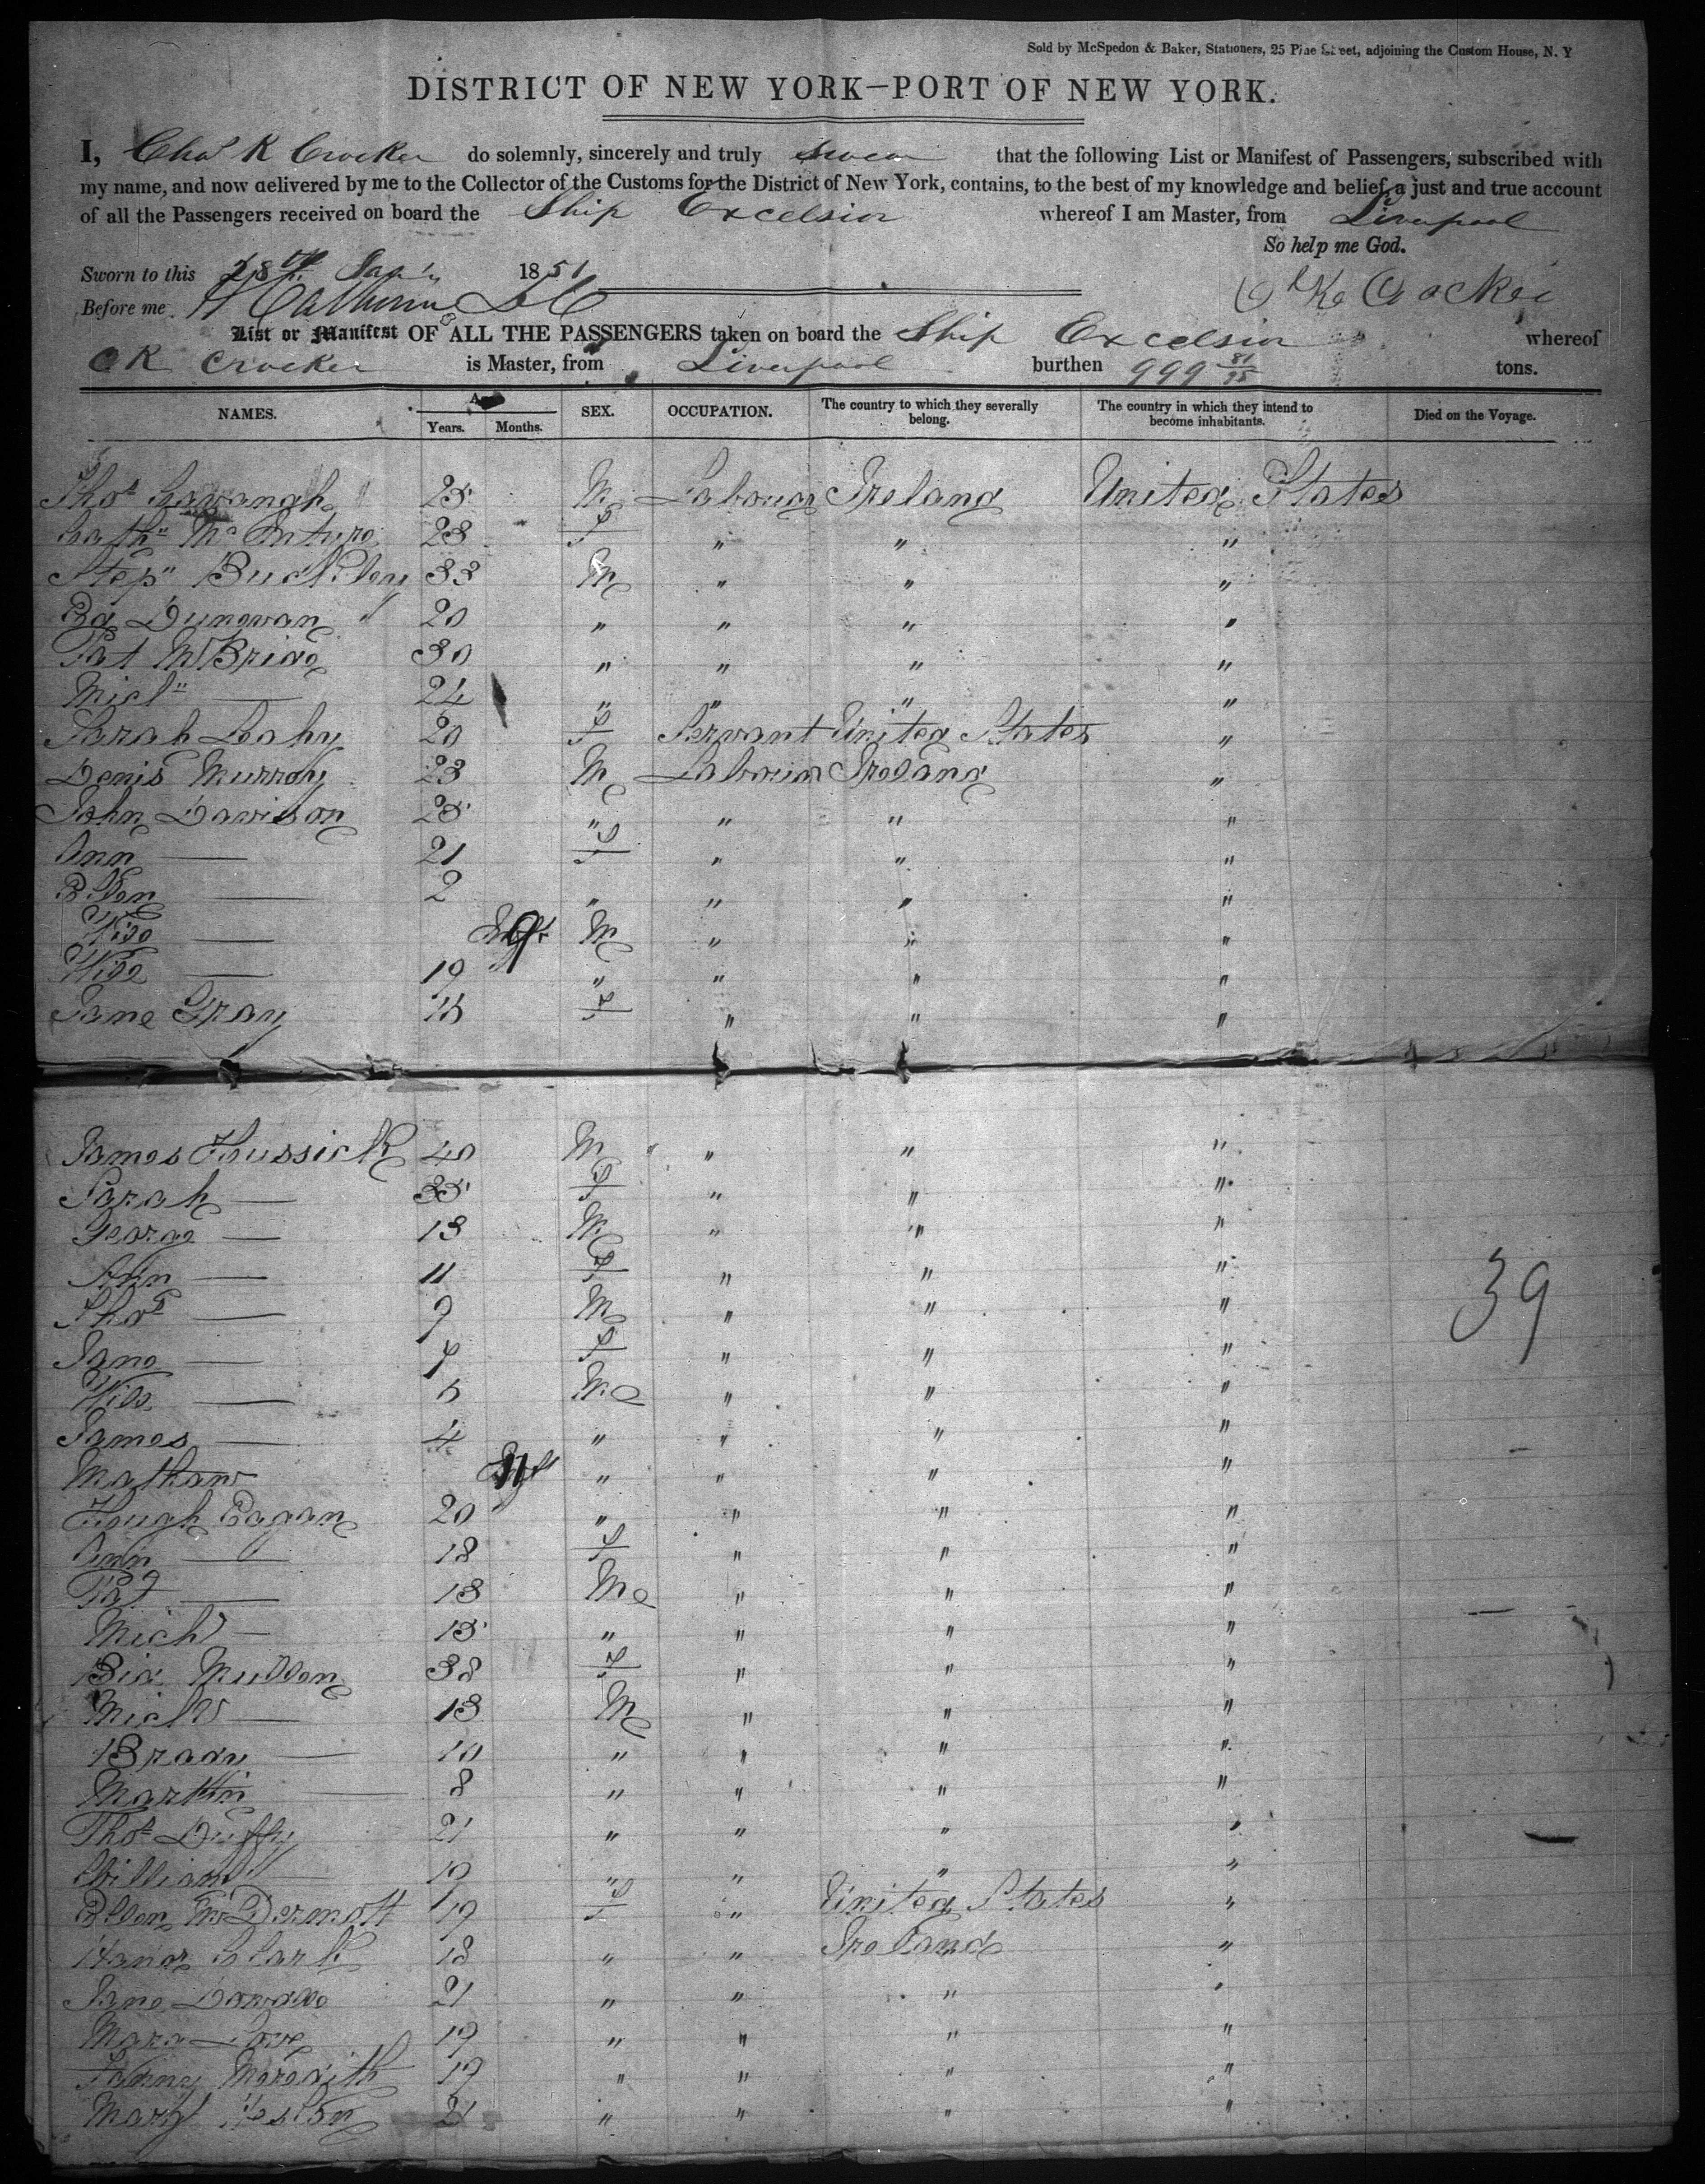 Sold by McSpedon & Baker, Stationers, 25 Pine Street, adjoining the Custom House, N. Y
DISTRICT OF NEW YORK—PORT OF NEW YORK.
I, Chas K Crocker do solemnly, sincerely and truly swear that the following List or Manifest of Passengers, subscribed with
my name, and now delivered by me to the Collector of the Customs for the District of New York, contains, to the best of my knowledge and belief, a just and true account
of all the Passengers received on board the Ship Excelsior whereof I am Master, from Liverpool
So help me God.
Sworn to this 28th 1851
Before me
List or Manifest OF ALL THE PASSENGERS taken on board the Ship Excelsior whereof
C K Crocker is Master, from Liverpool burthen 999 81/95 tons.
NAMES. Years. Months. SEX. OCCUPATION. The country to which they severally belong. The country in which they intend to become inhabitants. Died on the Voyage.
Thos Cavangh 25 M Laborer Ireland United States
Cathn McIntyre 23 F " " "
Stepn Buckley 33 M " " "
Bd Dunovan 20 " " " "
Pat McBride 30 " " " "
Micl — 24 " " " "
Sarah Leahy 20 F Servant United States "
Denis Murray 23 M Laborer Ireland "
John Davison 25 " " " "
Ann — 21 F " " "
Ellen — 2 " " " "
— 9 M " " "
— 19 " " " "
Jane Gray 15 F " " "
James Hussick 40 M " " "
Sarah — 35 F " " "
George — 13 M " " "
Ann — 11 F " " "
Thos — 9 M " " "
Jane — 7 F " " "
Will — 5 M " " "
James — 4 " " " "
Mathew 11 " " " "
Hough Eagan 20 " " " "
Ann — 18 F " " "
Pat — 13 M " " "
Michl — 15 " " " "
Bid Mullen 38 F " " "
Michl — 13 M " " "
Brady — 10 " " " "
Martin — 8 " " " "
Thos Duffy 21 " " " "
William — 19 " " " "
Ellen McDermott 19 F " United States "
Hanor Clark 18 " " Ireland "
Jane 21 " " " "
19 " " " "
Fanny Meredith 19 " " " "
Mary 21 " " " "
39